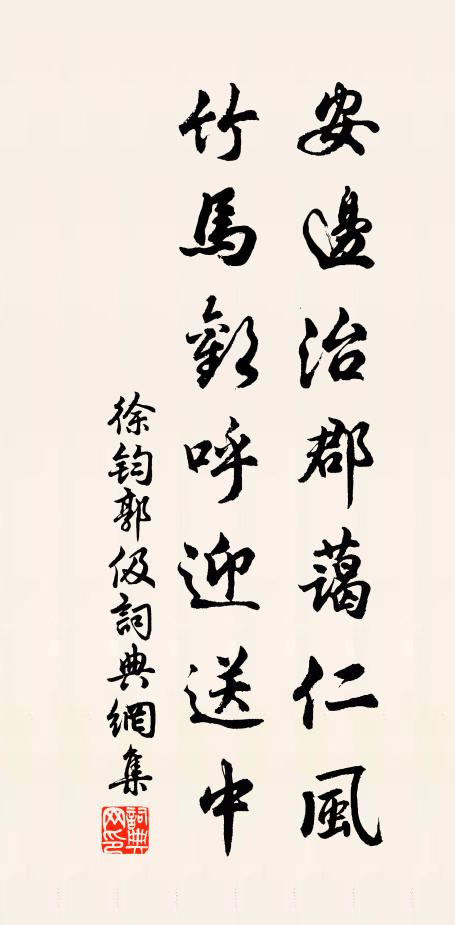 安邊治郡藹仁風
竹馬歡呼迎送中
徐鈞郭伋詞典網集
詞典網印